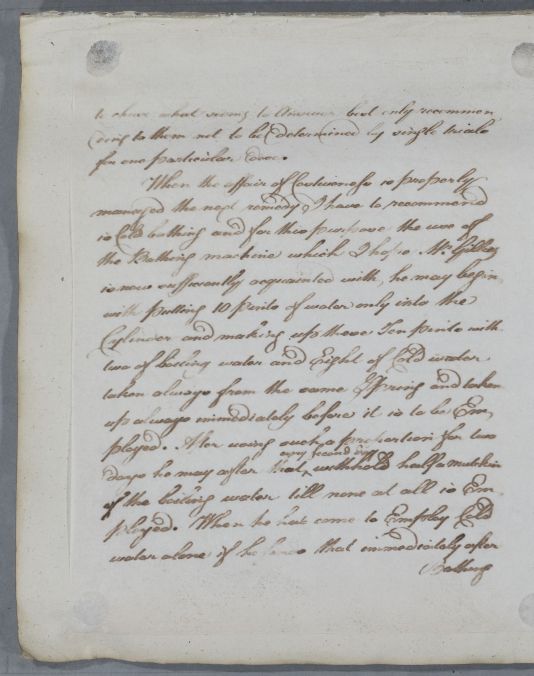 to chuse what seems to answer best only recommen
ding to them not to be determined by single trials
for one particular Dose.
When the affair of Costiveness is properly
managed the next remedy I have to recommend
is Cold bathing and for this purpose the use of
the Bathing machine which I hope Mr.
is now sufficiently acquainted with, he may begin
with putting 10 pints of water only into the
Cylinder and making up these Ten pints with
two of boiling water and Eight of Cold water
taken always from the same Spring and taken
up always immediately before it is to be Em
ployed. After using such a proportion for two
every second day
days he may after that withhold half a mutchkin
of the boiling water till none at all is Em
ployed. When he has come to Employ Cold
water alone if he finds that immediately after
Bathing